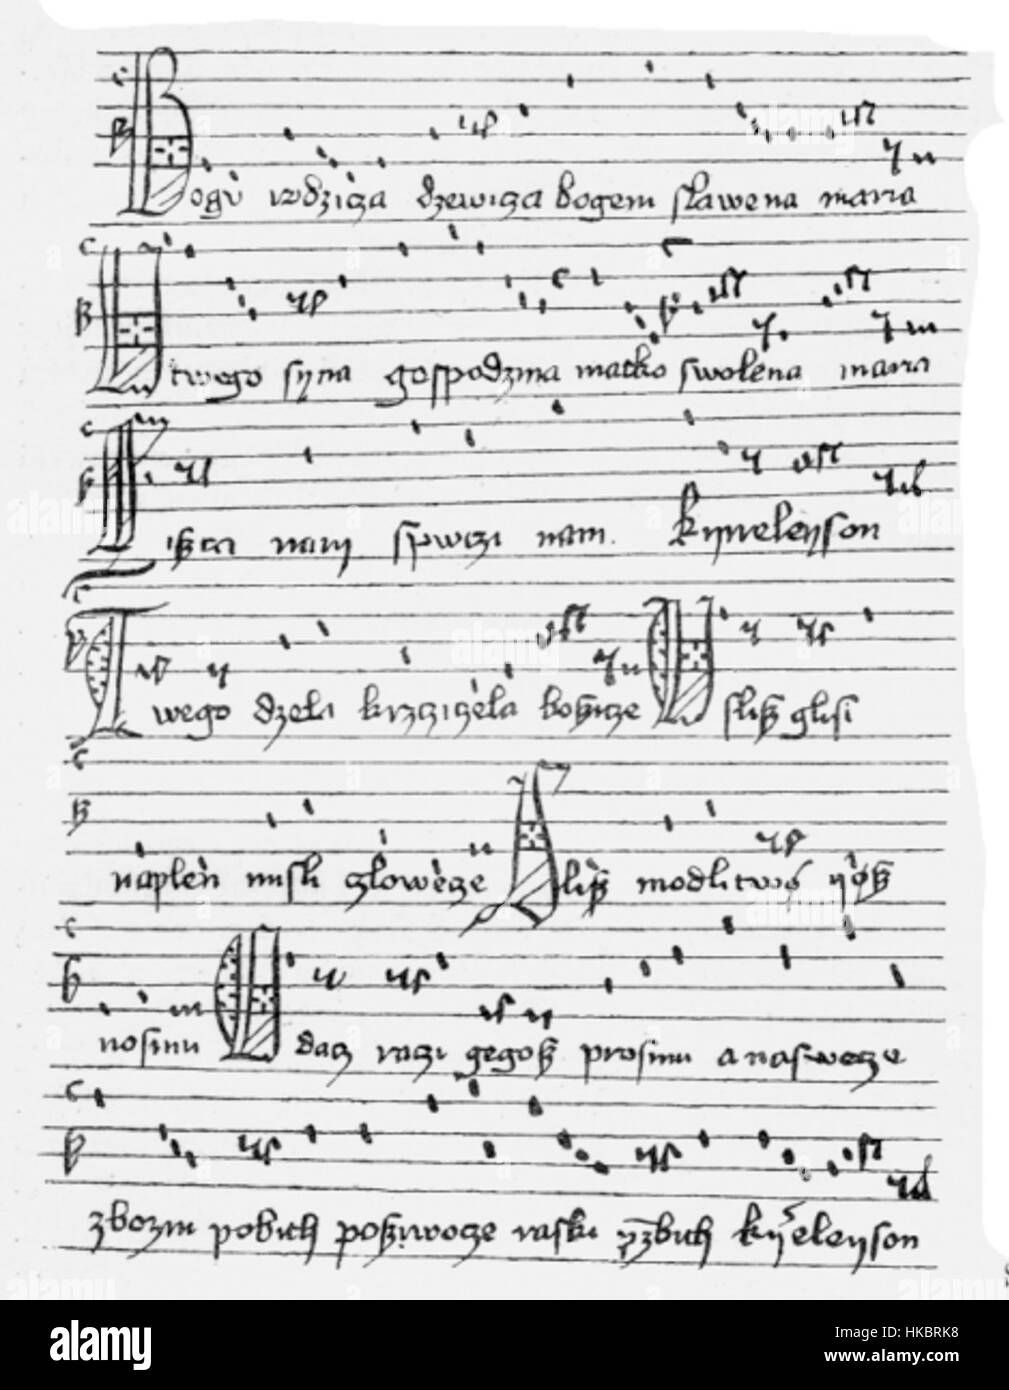 Bogu rodzicza dzewicza bogem slawena maria
U twego syna gospodzina matko swolena maria
Siszczi nam spwczi nam. Kyrieleyson
Twego dzela krzcziczela boszicze Uslisz glosi
naplen misli czlowecze Slisz modlitwo yøsz
nosimi Odacz raczi gegosz prosimi a naswecze
zbozni pobith posziwocze rasski przebith kyrieleyson
alamy
Image ID: HKBRK8
www.alamy.com